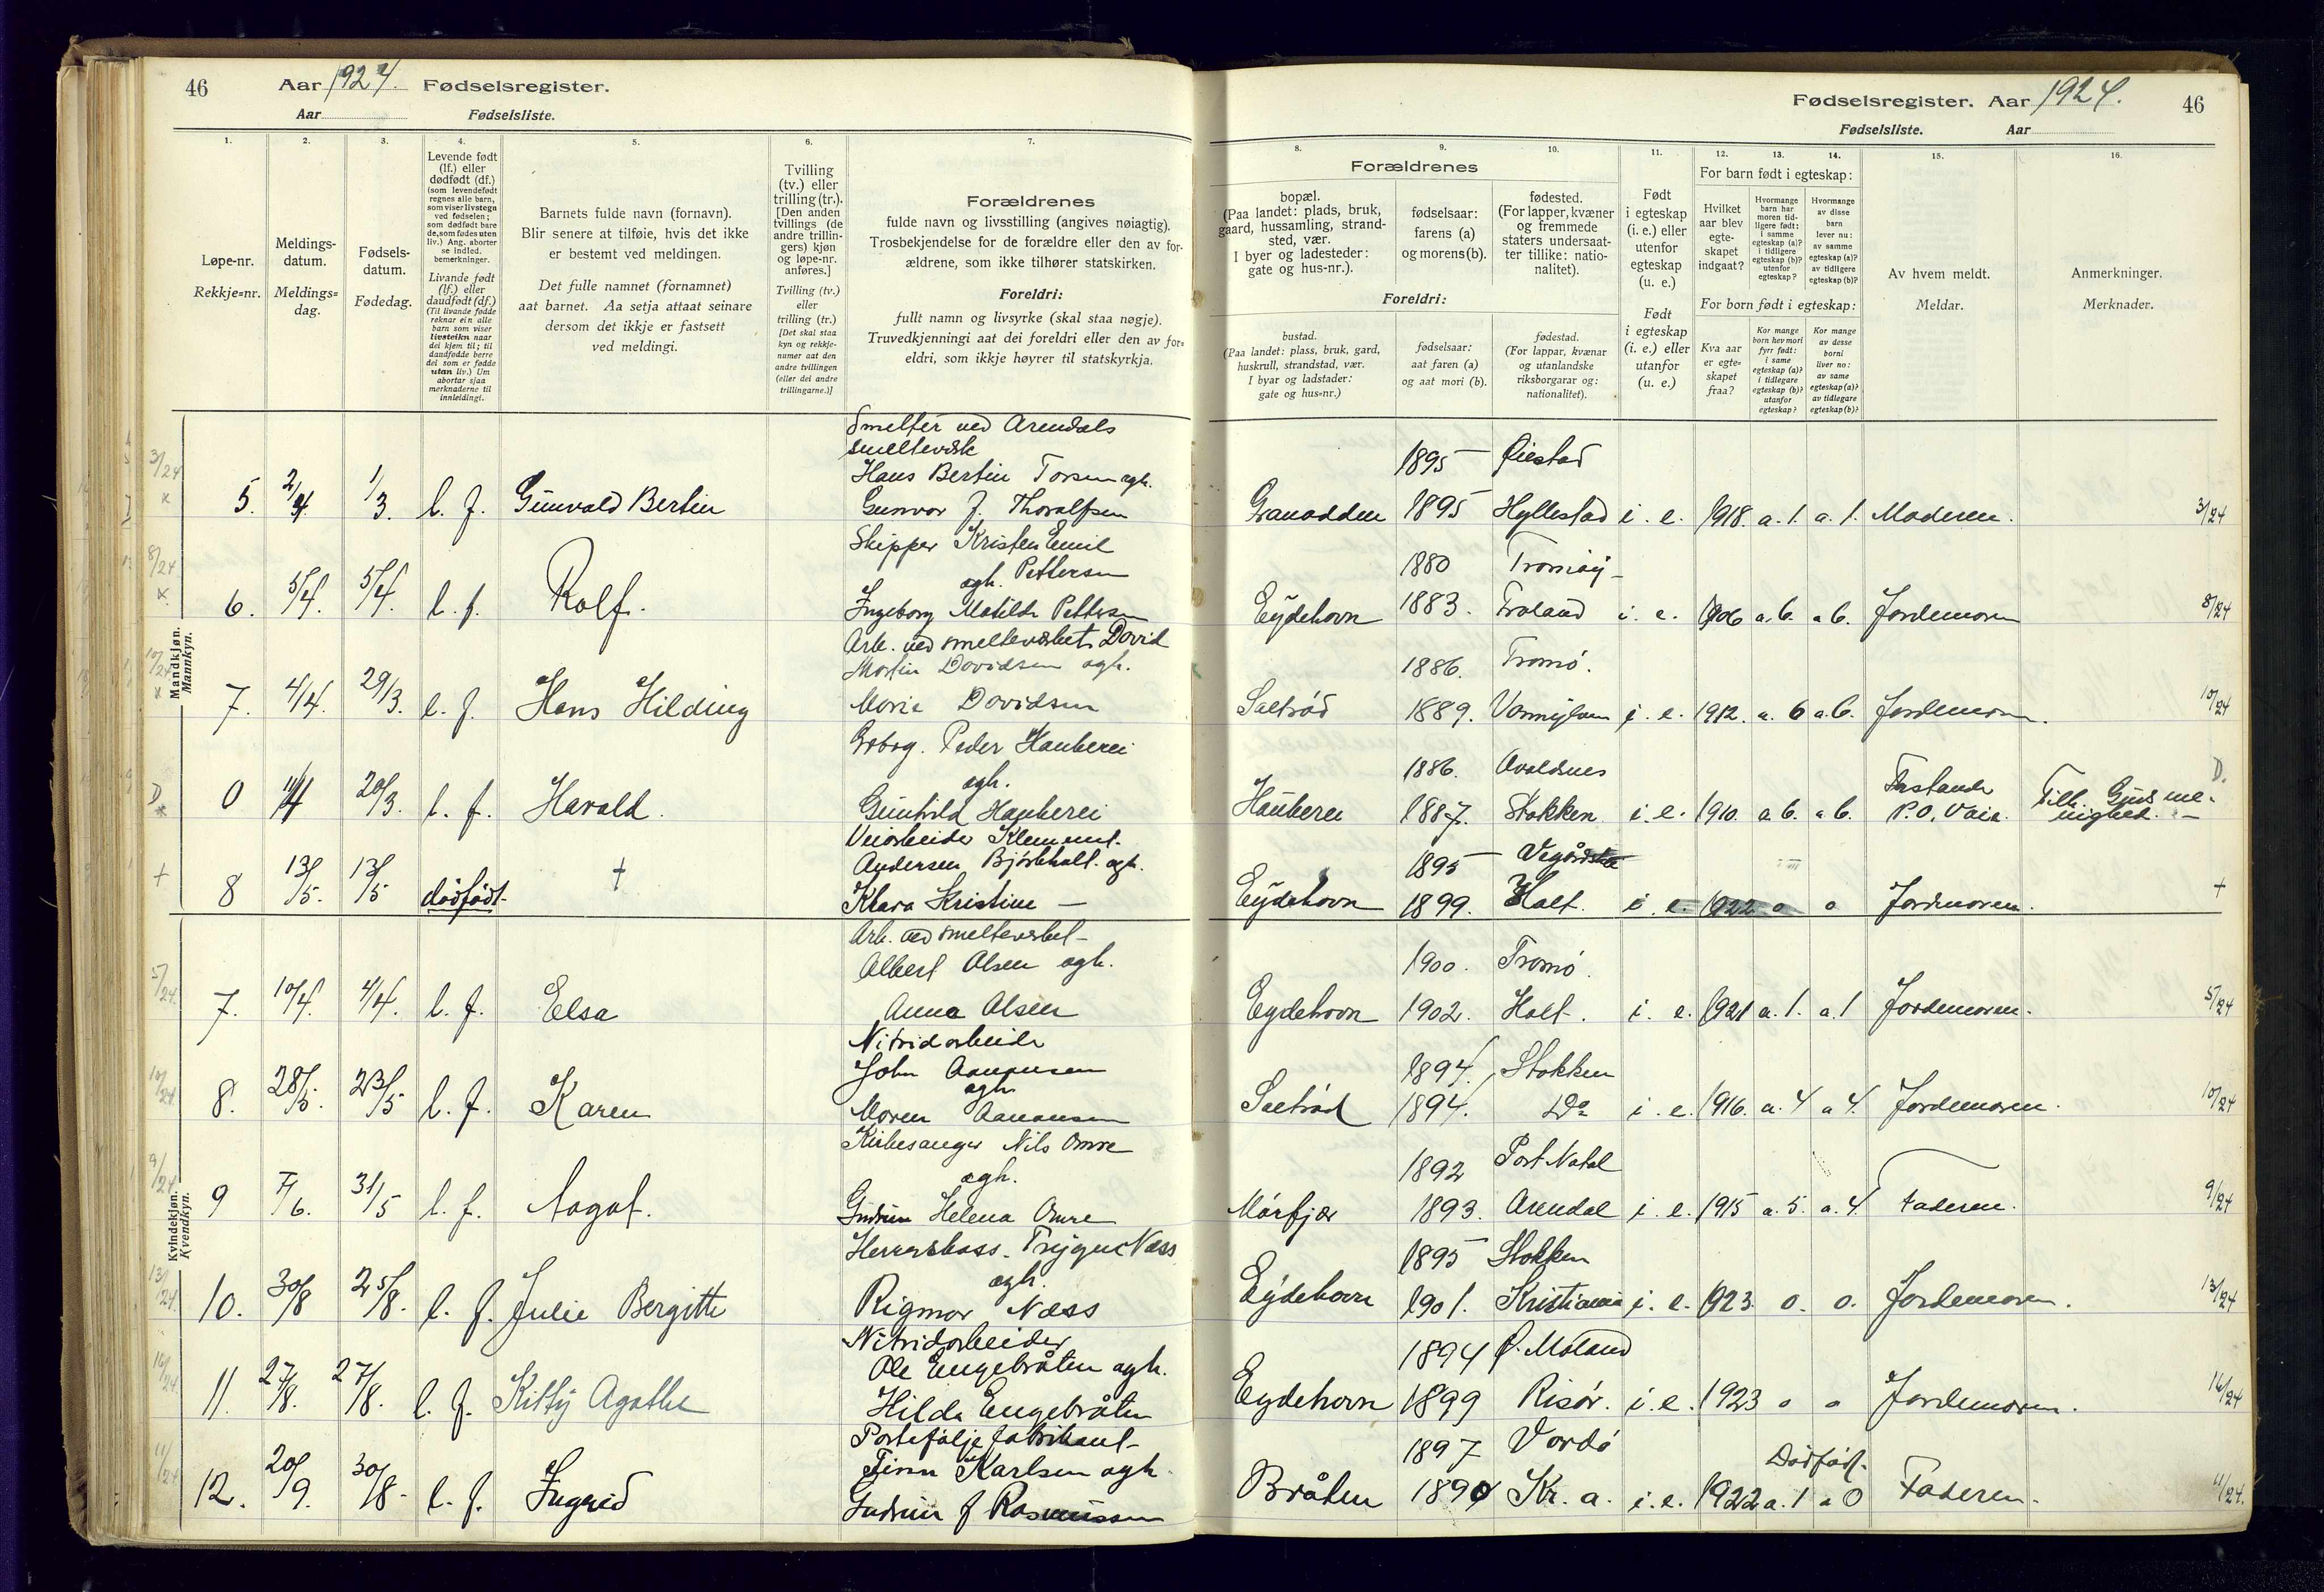 46 Aar 1924. Fødselsregister.
Aar Fødselsliste.
Fødselsregister. Aar 1924. 46
Fødselsliste. Aar
1. 2. 3. 4. 5. 6. 7.
Løpe-nr.
Rekkje=nr.
Meldings-
datum.
Meldings=
dag.
Fødsels-
datum.
Fødedag.
Levende født
(lf.) eller
dødfødt (df.)
(som levendefødt
regnes alle barn,
som viser livstegn
ved fødselen;
som dødfødt bare
de, som fødes uten
liv.) Ang. aborter
se indled.
bemerkninger.
Livande født
(lf.) eller
daudfødt (df.)
(Til livande fødde
reknar ein alle
barn som viser
livsteikn naar
dei kjem til; til
daudfødde berre
dei som er fødde
utan liv.) Um
abortar sjaa
merknaderne til
innleidingi.
Barnets fulde navn (fornavn).
Blir senere at tilføie, hvis det ikke
er bestemt ved meldingen.
Det fulle namnet (fornamnet)
aat barnet. Aa setja attaat seinare
dersom det ikkje er fastsett
ved meldingi.
Tvilling
(tv.) eller
trilling (tr.).
[Den anden
tvillings (de
andre trillin-
gers) kjøn
og løpe-nr.
anføres.]
Tvilling (tv.)
eller
trilling (tr.)
[Det skal staa
kyn og rekkje-
numer aat den
andre tvillingen
(eller dei andre
trillingarne.)]
Forældrenes
fulde navn og livsstilling (angives nøiagtig).
Trosbekjendelse for de forældre eller den av for-
ældrene, som ikke tilhører statskirken.
Foreldri:
fullt namn og livsyrke (skal staa nøgje).
Truvedkjenningi aat dei foreldri eller den av for=
eldri, som ikkje høyrer til statskyrkja.
8. 9. 10. 11. 12. 13. 14. 15. 16.
Forældrenes
bopæl.
(Paa landet: plads, bruk,
gaard, hussamling, strand-
sted, vær.
I byer og ladesteder:
gate og hus-nr.).
fødselsaar:
farens (a)
og morens (b).
fødested.
(For lapper, kvæner
og fremmede
staters undersaat-
ter tillike: natio-
nalitet).
Foreldri:
bustad.
(Paa landet: plass, bruk, gard,
huskrull, strandstad, vær.
I byar og ladstader:
gate og hus=nr.)
fødselsaar:
aat faren (a)
og aat mori (b).
fødestad.
(For lappar, kvænar
og utanlandske
riksborgarar og:
nationalitet).
Født
i egteskap
(i. e.) eller
utenfor
egteskap
(u. e.)
Født
i egteskap
(i. e.) eller
utanfor
(u. e.)
For barn født i egteskap:
Hvilket
aar blev
egte-
skapet
indgaat?
Hvormange
barn har
moren tid-
ligere født:
i samme
egteskap (a)?
i tidligere
egteskap (b)?
utenfor
egteskap?
Hvormange
av disse
barn
lever nu:
av samme
egteskap (a)?
av tidligere
egteskap (b)?
For born født i egteskap:
Kva aar
er egte-
skapet
fraa?
Kor mange
born hev mori
fyrr født:
i same
egteskap (a)?
i tidlegare
egteskap (b)?
utanfor
egteskap?
Kor mange
av desse
borni
liver no:
av same
egteskap (a)?
av tidlegare
egteskap (b)?
Av hvem meldt.
Meldar.
Anmerkninger.
Merknader.
Mandkjøn.
Mannkyn.
Smelter ved Arendals
smelteverk
Hans Bertin Torsen ogh. 1895 Øiestad
3/24 5. 2/4 1/3. l. f. Gunvald Bertin Gunvor f. Thoralfsen Granodden 1895 Hyllestad i. e. 1918. a. 1. a. 1. Moderen. 3/24
Skipper Kristen Emil
ogh. Pettersen 1880 Tromøy
8/24 6. 5/4. 5/4. l. f. Rolf. Ingeborg Matilde Pettersen Eydehavn 1883. Froland i. e. 1906 a. 6. a 6. Jordemoren 8/24
Arb. ved smelteverket David
Martin Davidsen ogh. 1886. Tromø.
10/24 7. 4/4. 29/3. l. f. Hans Hilding Marie Davidsen Saltrød 1889. i. e. 1912. a. 6 a. 6. Jordemoren. 10/24
Peder Hauberei
ogh. 1886. Avaldsnes
D. 0 11/4 20/3. l. f. Harald. Gunhild Hauberei Hauberei 1887. Stokken i. e. 1910. a. 6. a 6. Forstander P. O. Vaie. Tilh. Guds me-
nighed. D.
Veiarbeider Klement
Andersen Bjorkholt. ogh. 1895 Vegårdshei
+ 8 13/5. 13/5 dødfødt. + Klara Kristine — Eydehavn 1899. Holt. i. e. 1922 o o Jordmoren. +
Kvindekjøn.
Kvendkyn.
Arb. ved smelteverket
Albert Olsen ogh. 1900. Tromø.
5/24. 7. 10/4. 4/4. l. f. Elsa Anna Olsen Eydehavn 1902. Holt. i. e. 1921 a. 1. a. 1 Jordemoren. 5/24
Nitridarbeider
John Aanonsen
ogh. 1894. Stokken
10/24 8. 28/5. 23/5 l. f. Karen Maren Aanonsen Saltrød 1894. Do i. e. 1916. a. 4 a 4. Jordemoren. 10/24
Kirkesanger Nils Omre
ogh. 1892 Port Natal
9/24 9 7/6. 31/5 l. f. Aagot. Gudrun Helena Omre Mørfjær 1893. Arendal i. e. 1915 a. 5. a. 4. Faderen. 9/24
Trygve Næss
ogh. 1895 Stokken
13/24. 10. 30/8 25/8. l. f. Julie Bergitte Rigmor Næss Eydehavn 1901. Kristiania i. e. 1923. o. o. Jordemoren. 13/24
Nitridarbeider
Ole Engebråten ogh. 1894 Ø. Moland
16/24 11. 27/8. 27/8. l. f. Kitty Agathe Hilda Engebråten Eydehavn 1899 Risør. i. e. 1923 o o Jordemoren. 16/24
Portefølje fabrikant
Finn Karlsen ogh. 1897 Vardø Dødfødt.
11/24 12. 20/9. 30/8. l. f. Ingrid Gudrun f Rasmussen Bråten 1890 Kr. a. i. e. 1922 a. 1 a 0 Faderen. 11/24.